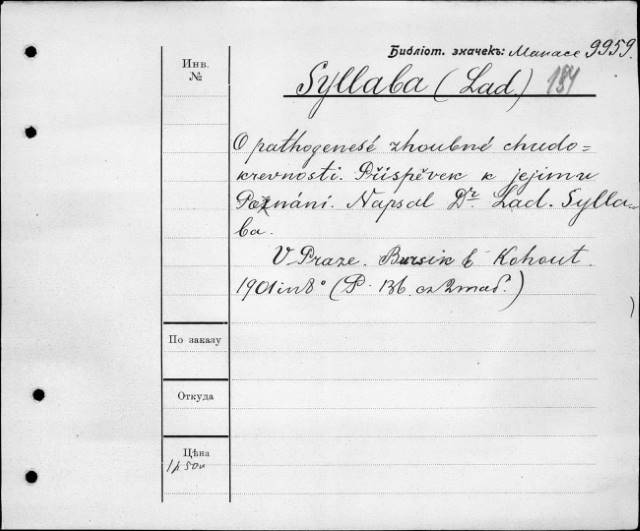 Библіот. значекъ: Manace 9959.
Инв.
№
Syllaba (Lad.) 184
O pathogenesé zhoubné chudo=
krevnosti. Příspěvek k jejimu
Poznání. Napsal Dr. Lad. Sylla-
ba.
V Praze. Bursik & Kohout.
1901 in 8° (P. 136. cz 2 mad.)
По заказу
Откуда
Цѣна